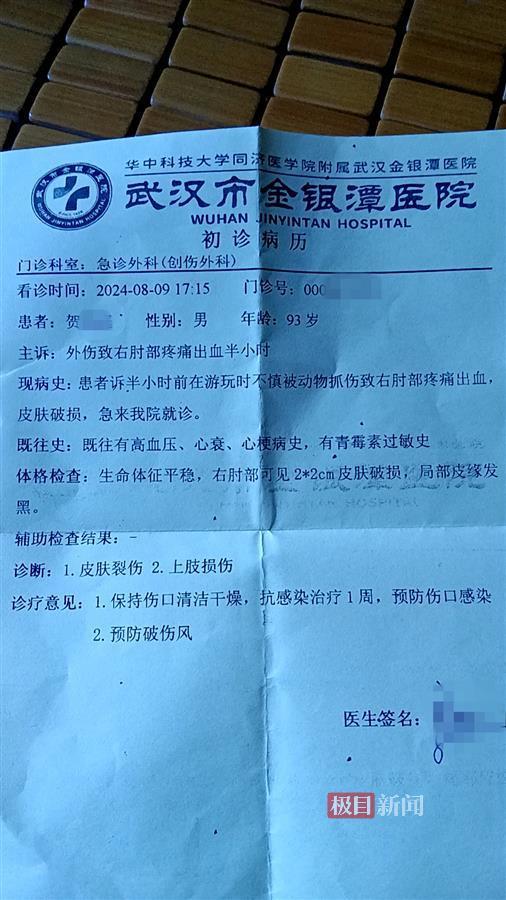 华中科技大学同济医学院附属武汉金银潭医院
武汉市金银潭医院
WUHAN JINYINTAN HOSPITAL
初诊病历
门诊科室：急诊外科(创伤外科)
看诊时间：2024-08-09 17:15 门诊号：000
患者：贺 性别：男 年龄：93岁
主诉：外伤致右肘部疼痛出血半小时
现病史：患者诉半小时前在游玩时不慎被动物抓伤致右肘部疼痛出血，
皮肤破损，急来我院就诊。
既往史：既往有高血压、心衰、心梗病史，有青霉素过敏史
体格检查：生命体征平稳，右肘部可见2*2cm皮肤破损，局部皮缘发
黑。
辅助检查结果：-
诊断：1.皮肤裂伤 2.上肢损伤
诊疗意见：1.保持伤口清洁干燥，抗感染治疗1周，预防伤口感染
2.预防破伤风
医生签名：
极目新闻